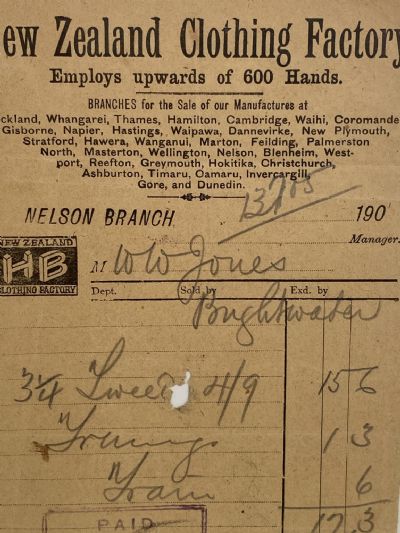 ew Zealand Clothing Factory
Employs upwards of 600 Hands.
BRANCHES for the Sale of our Manufactures at
ckland, Whangarei, Thames, Hamilton, Cambridge, Waihi, Coromande
Gisborne, Napier, Hastings, Waipawa, Dannevirke, New Plymouth,
Stratford, Hawera, Wanganui, Marton, Feilding, Palmerston
North, Masterton, Wellington, Nelson, Blenheim, West-
port, Reefton, Greymouth, Hokitika, Christchurch,
Ashburton, Timaru, Oamaru, Invercargill,
Gore, and Dunedin.
NELSON BRANCH 190
Manager.
NEW ZEALAND
HB
CLOTHING FACTORY
M W W Jones
Dept. Sold by Exd. by
Brightwater
3¼ Tweed 4/9 15 6
1 3
6
PAID 17.3